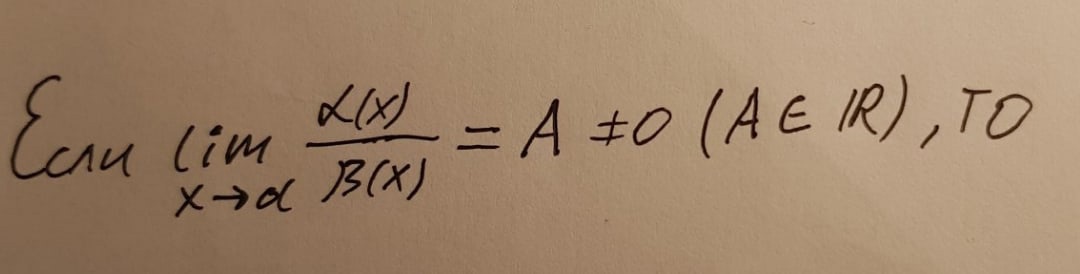 Если lim x→a α(x)/β(x) = A ≠ 0 (A ∈ ℝ), то